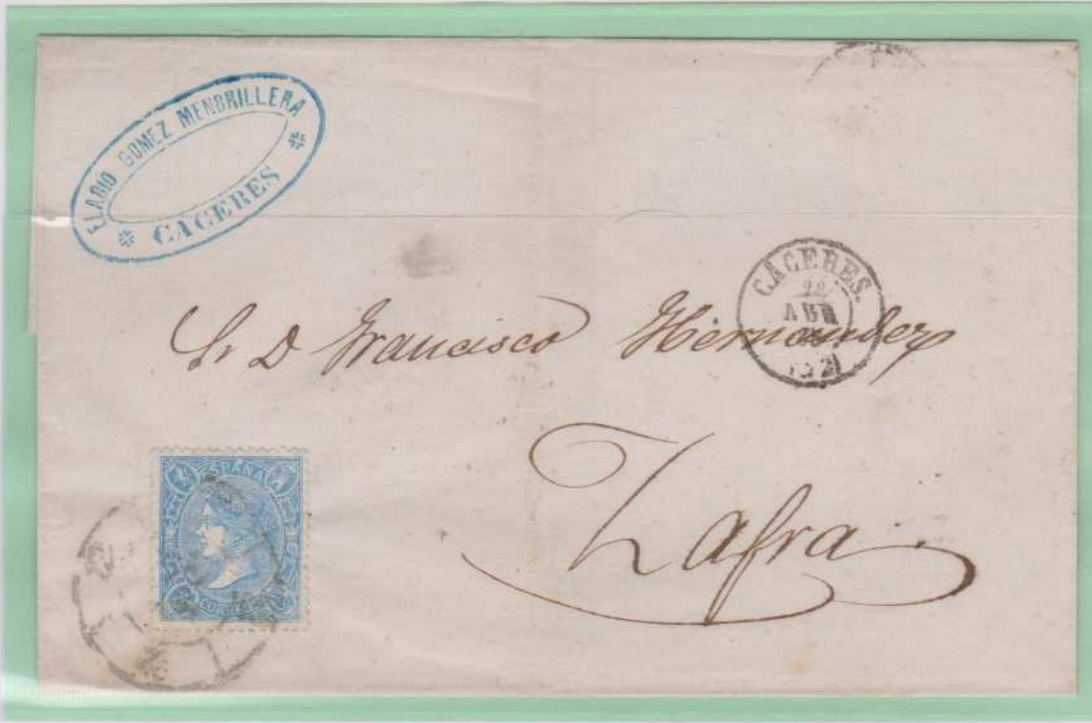 ELADIO GOMEZ MENBRILLERA
CACERES
CACERES.
22
ABR
Sr D Francisco Hernandez
Zafra
ESPAÑA
CORREOS